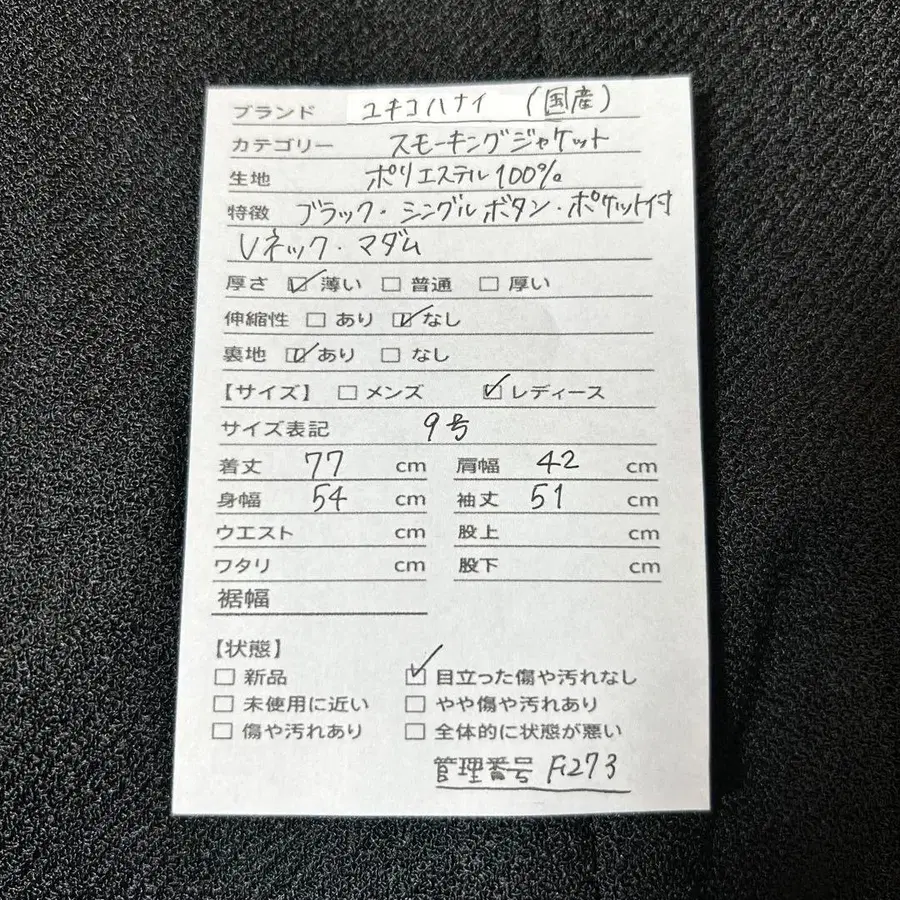 ブランド ユキコハナイ (国産)
カテゴリー スモーキングジャケット
生地 ポリエステル100%
特徴 ブラック・シングルボタン・ポケット付
Vネック・マダム
厚さ ☑ 薄い ☐ 普通 ☐ 厚い
伸縮性 ☐ あり ☑ なし
裏地 ☑ あり ☐ なし
【サイズ】 ☐ メンズ ☑ レディース
サイズ表記 9号
着丈 77 cm 肩幅 42 cm
身幅 54 cm 袖丈 51 cm
ウエスト cm 股上 cm
ワタリ cm 股下 cm
裾幅
【状態】
☐ 新品 ☑ 目立った傷や汚れなし
☐ 未使用に近い ☐ やや傷や汚れあり
☐ 傷や汚れあり ☐ 全体的に状態が悪い
管理番号 Fi273